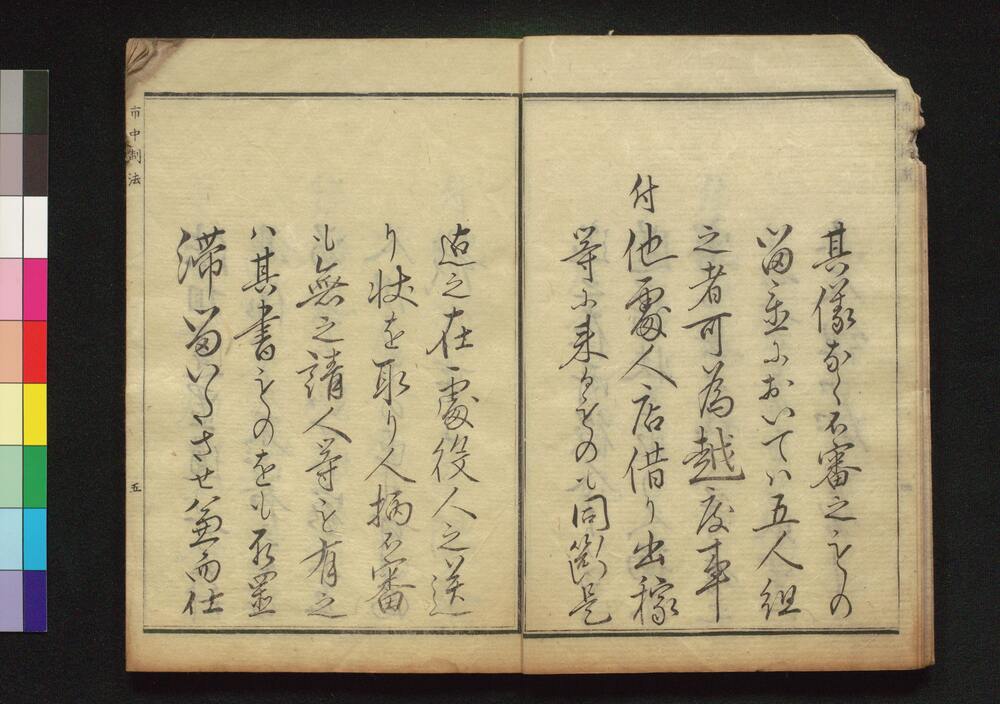 其儀なく不審之ものゝ
留置においてハ五人組
之者可為越度事
付他処人店借り出稼
等に来るものも同断是
迄之在処役人之送
り状を取り人柄不審
も無之請人等も有之
ハ其書ものをも取置
滞留いたさせ兼而仕
市中制法
五